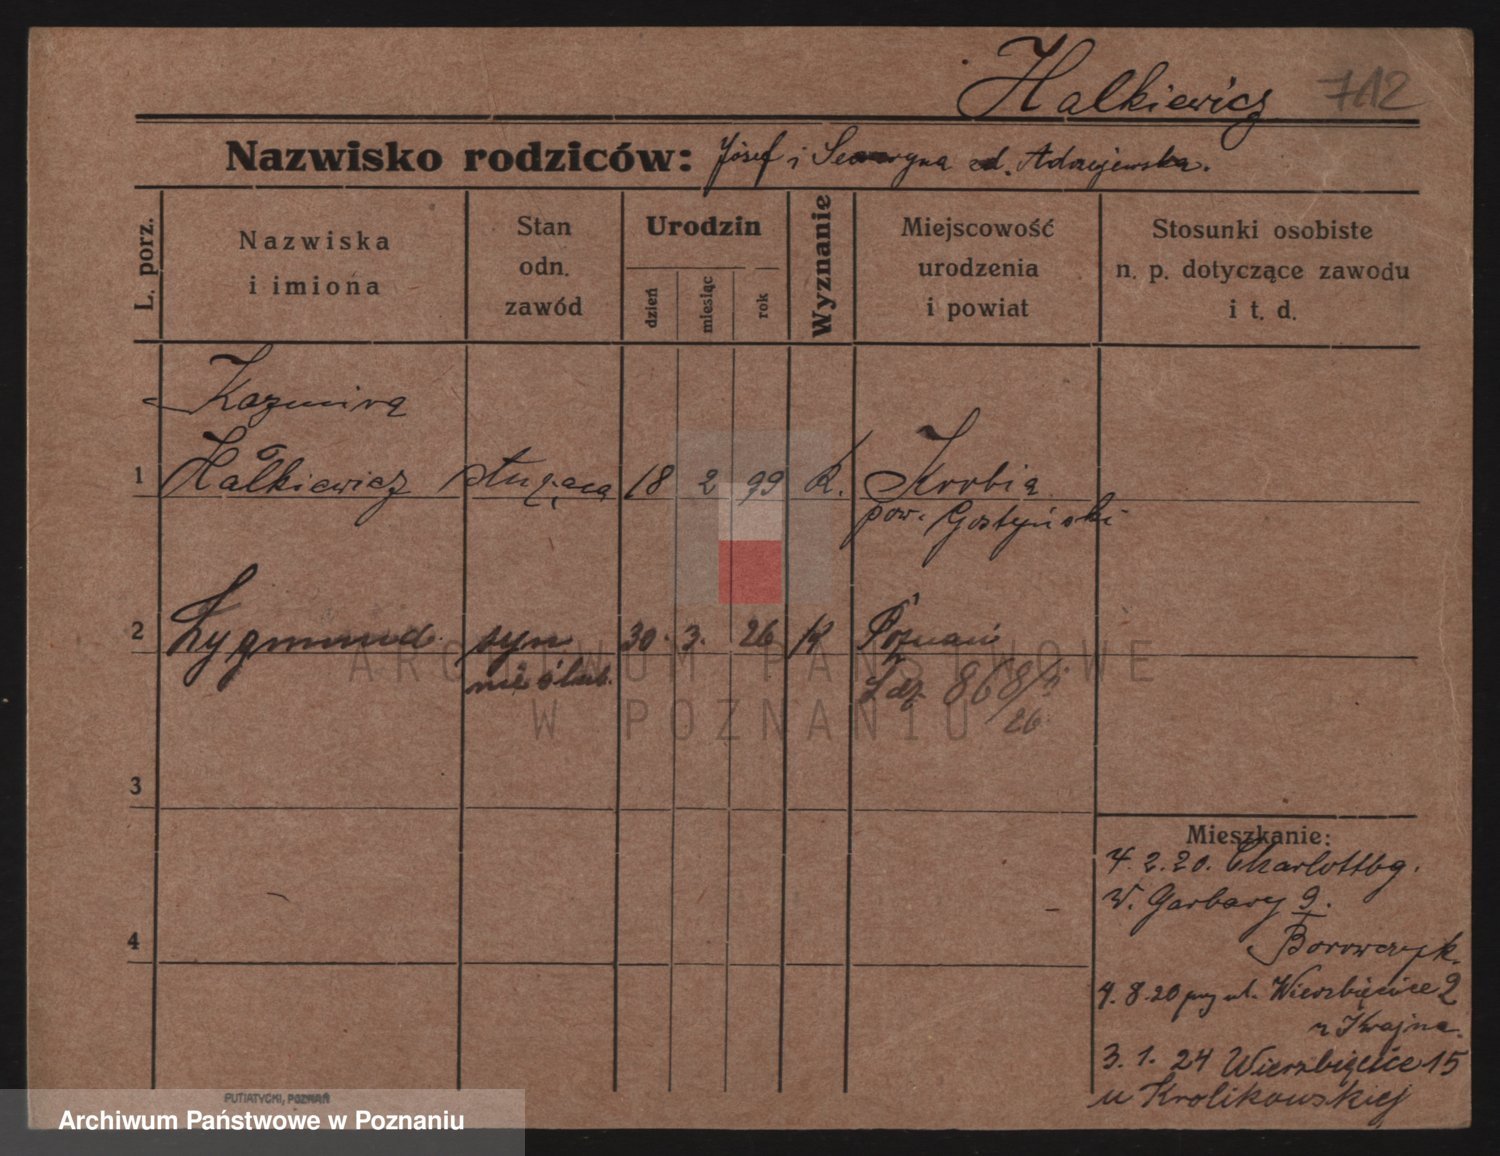 Halkiewicz 712
Nazwisko rodziców: Józef i Seweryna zd. Adrzejewska.
L. porz.
Nazwiska
i imiona
Stan
odn.
zawód
Urodzin
dzień
miesiąc
rok
Wyznanie
Miejscowość
urodzenia
i powiat
Stosunki osobiste
n. p. dotyczące zawodu
i t. d.
Kazmira
1 Hałkiewicz służąca 18 2 99 R. Krobia
pow. Gostyński
2 Zygmund syn 30. 3. 26 R Poznań
nieślub. L dz. 868/
26
3
Mieszkanie:
4. 2. 20. Charlottbg.
W. Garbary 9.
Borowczyk.
4
4. 8. 20 przy ul. Wierzbięcice 2
u Krajna.
3. 1. 24 Wierzbięcice 15
u Krolikowskiej
PUTIATYCKI, POZNAŃ
ARCHIWUM PAŃSTWOWE
W POZNANIU
Archiwum Państwowe w Poznaniu